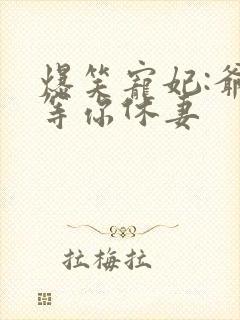 爆笑宠妃:爷
等你休妻
拉梅拉